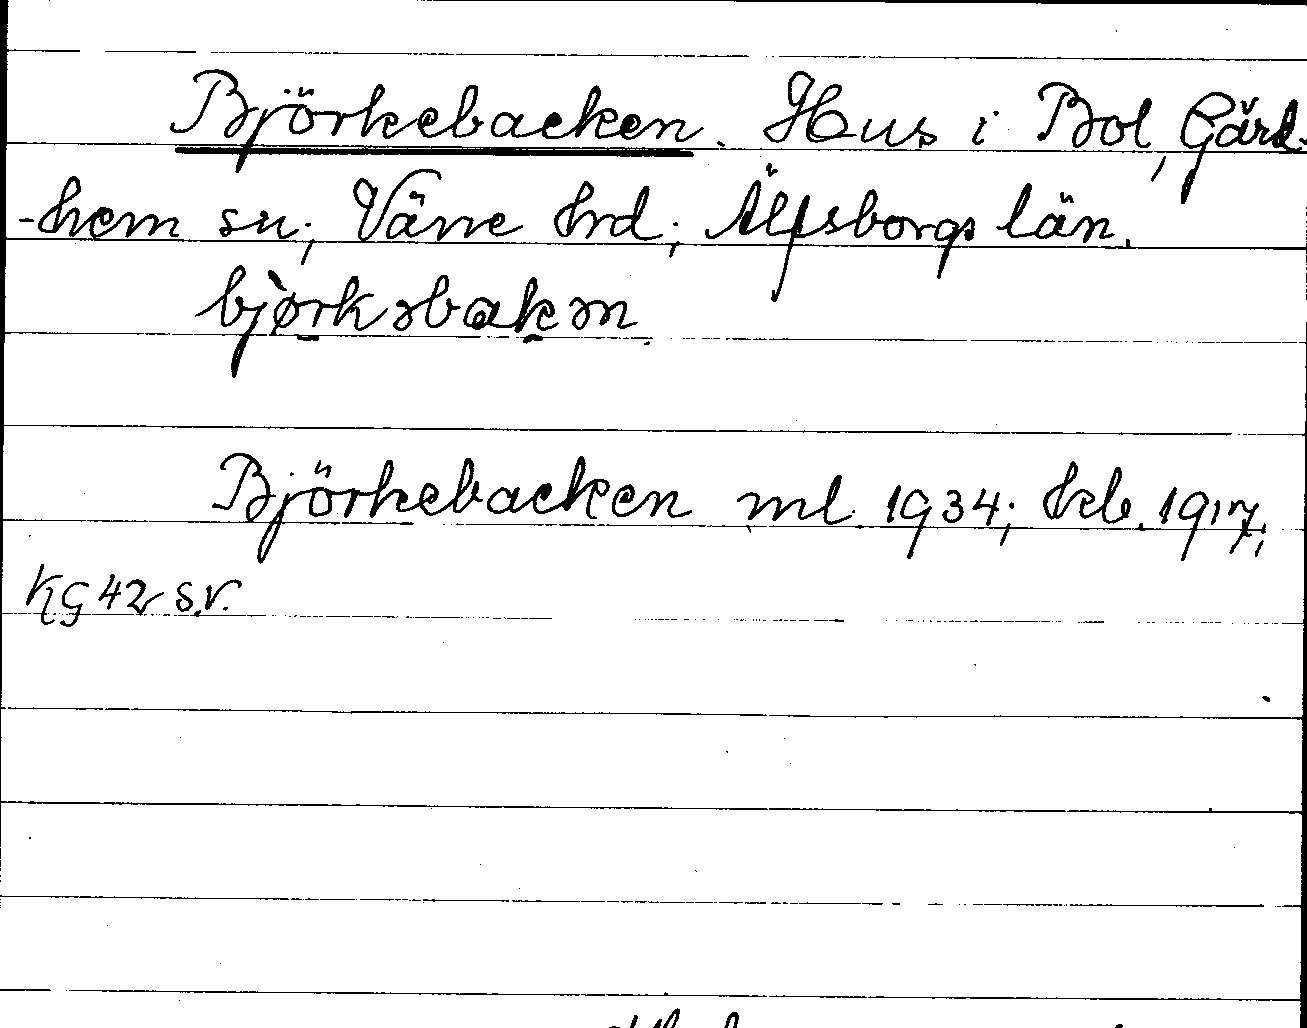 Björkebacken. Hus i Bol, Gärd-
-hem sn; Väne hrd; Älfsborgs län.
bjò̱rkəbaḵən.
Björkebacken ml. 1934; hfb. 1917;
KG 42 s.v.